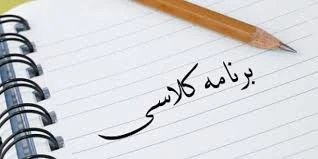 برنامه کلاسی